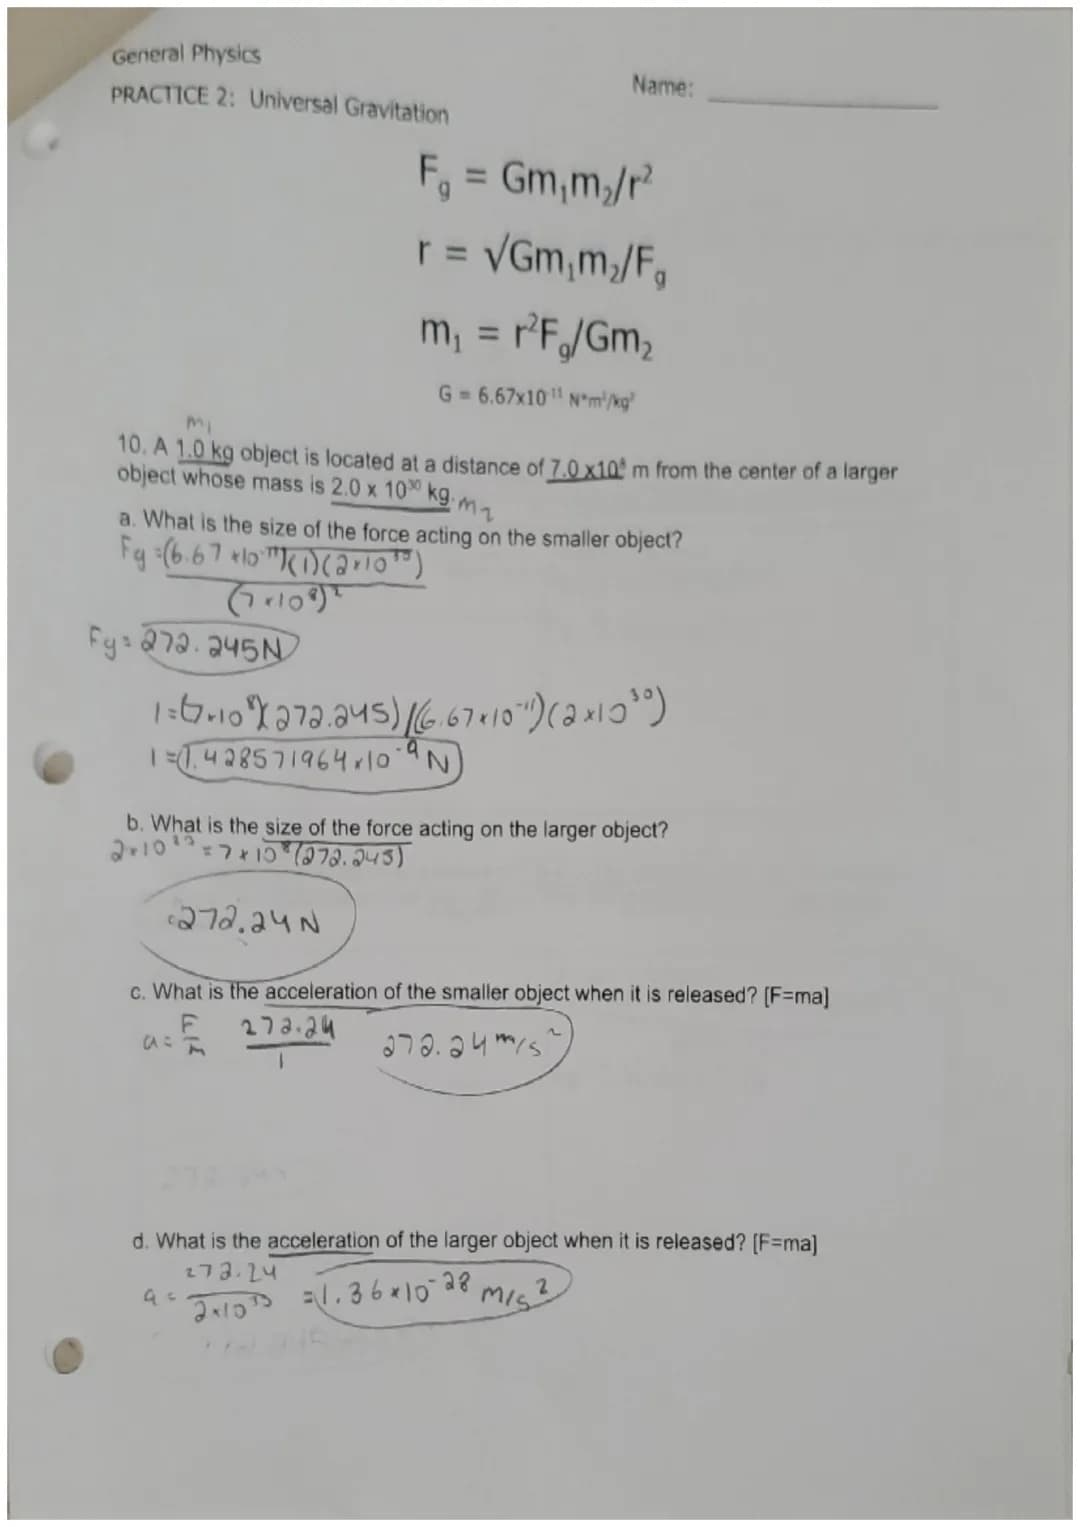 General Physics
Name:
PRACTICE 2: Universal Gravitation
Fg = Gm₁m₂/r²
r = √Gm₁m₂/Fg
m₁ = r²Fg/Gm₂
G = 6.67x10⁻¹¹ N*m²/kg²
m₁
10. A 1.0 kg object is located at a distance of 7.0 x10⁸ m from the center of a larger
object whose mass is 2.0 x 10³⁰ kg. m₂
a. What is the size of the force acting on the smaller object?
Fg =(6.67 x10⁻¹¹)(1)(2x10³⁰)
(7x10⁸)²
Fg = 272.245N
1=(7x10⁸)(272.245)/(6.67x10⁻¹¹)(2x10³⁰)
1=1.428571964x10⁻⁹N
b. What is the size of the force acting on the larger object?
2x10³⁰ = 7x10⁸(272.245)
272.24 N
c. What is the acceleration of the smaller object when it is released? [F=ma]
a = F/m 272.24/1 272.24 m/s²
d. What is the acceleration of the larger object when it is released? [F=ma]
272.24
a = 2x10³⁰ =1.36x10⁻²⁸ m/s²